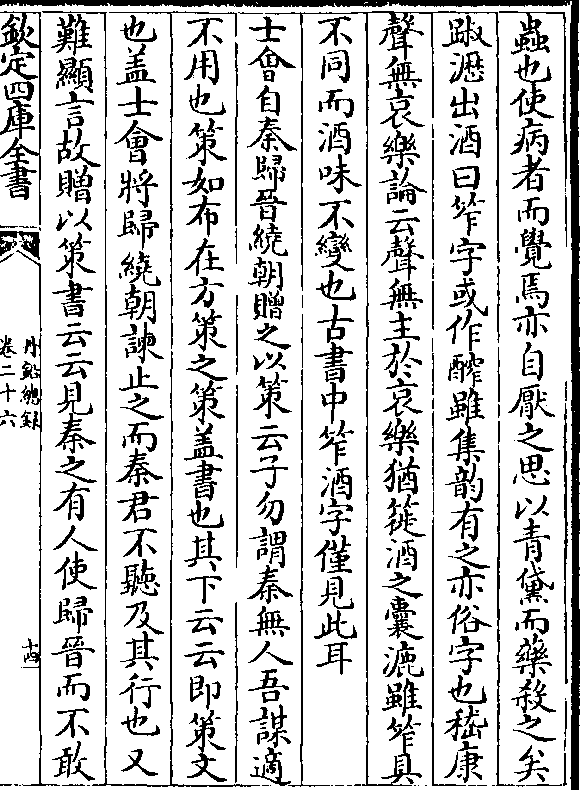 蟲也使病者而覺焉亦自厭之思以青黛而藥殺之矣
踧瀝出酒曰笮字或作醡雖集韵有之亦俗字也嵇康
聲無哀樂論云聲無主於哀樂猶簁酒之囊漉雖笮具
不同而酒味不變也古書中笮酒字僅見此耳
士會自秦歸晉繞朝贈之以策云子勿謂秦無人吾謀適
不用也策如布在方策之策盖書也其下云云即策文
也盖士會將歸繞朝諫止之而秦君不聽及其行也又
難顯言故贈以策書云云見秦之有人使歸晉而不敢
欽定四庫全書
丹鉛總録
卷二十六
十四